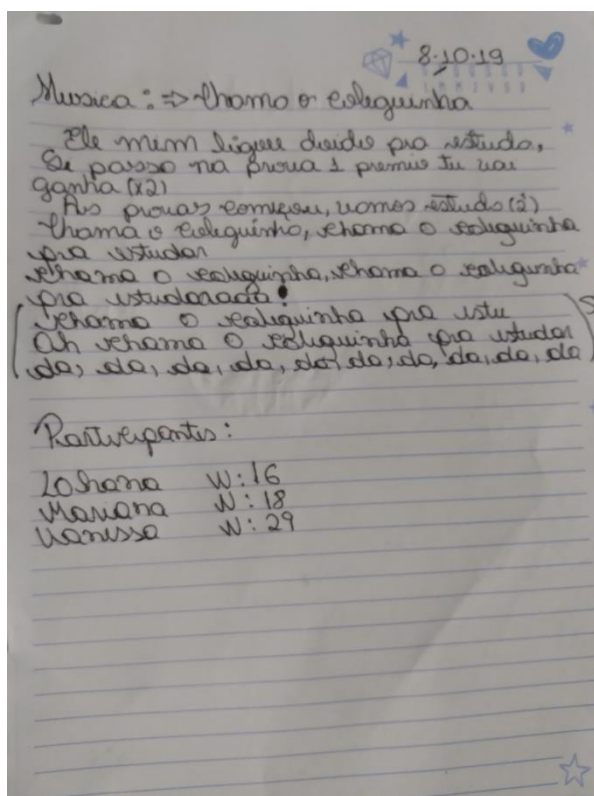 8.10.19
Musica: => Chama o coleguinha
Ele mim ligou doido pra estuda,
Se passo na prova 1 premio tu vai
ganha (x2)
As provas começou, vamos estuda (2)
Chama o coleguinha, chama o coleguinha
pra estudar
chama o coleguinha, chama o coleguinha
pra estudarada!
chama o coleguinha pra estu
Oh chama o coleguinha pra estudar
da, da, da, da, da, da, da, da, da, da
Participantes:
Lohana N: 16
Mariana N: 18
Vanessa N: 29